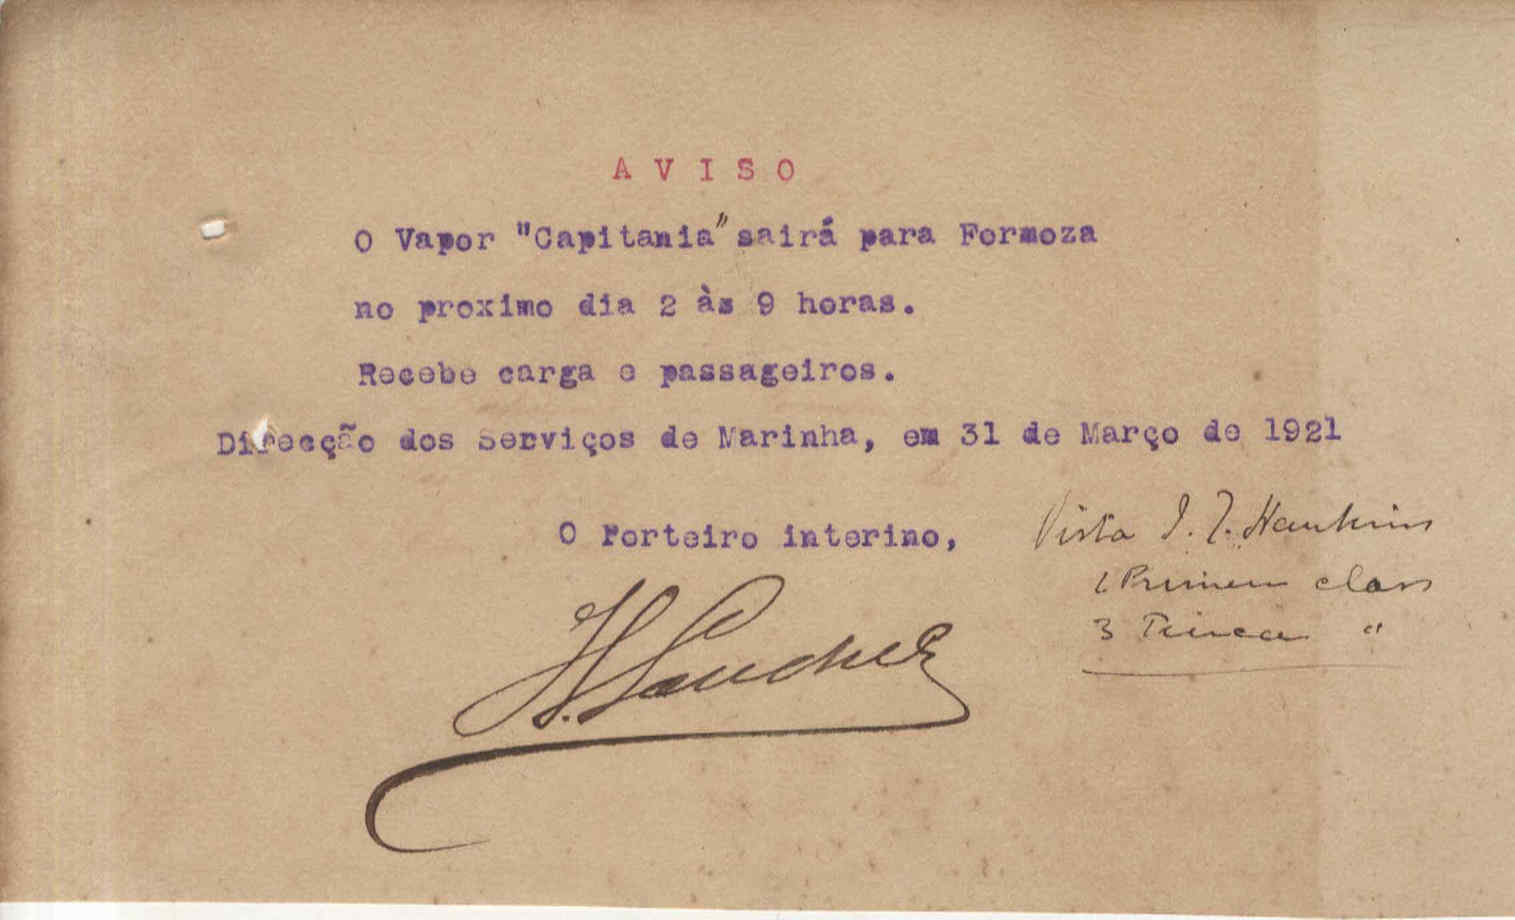 AVISO
O Vapor "Capitania" sairá para Formoza
no proximo dia 2 às 9 horas.
Recebe carga e passageiros.
Direcção dos Serviços de Marinha, em 31 de Março de 1921
O Porteiro interino,
Vista J. J. Hawkins
1 Primeira class
3 Terceira "
H. Sanchez